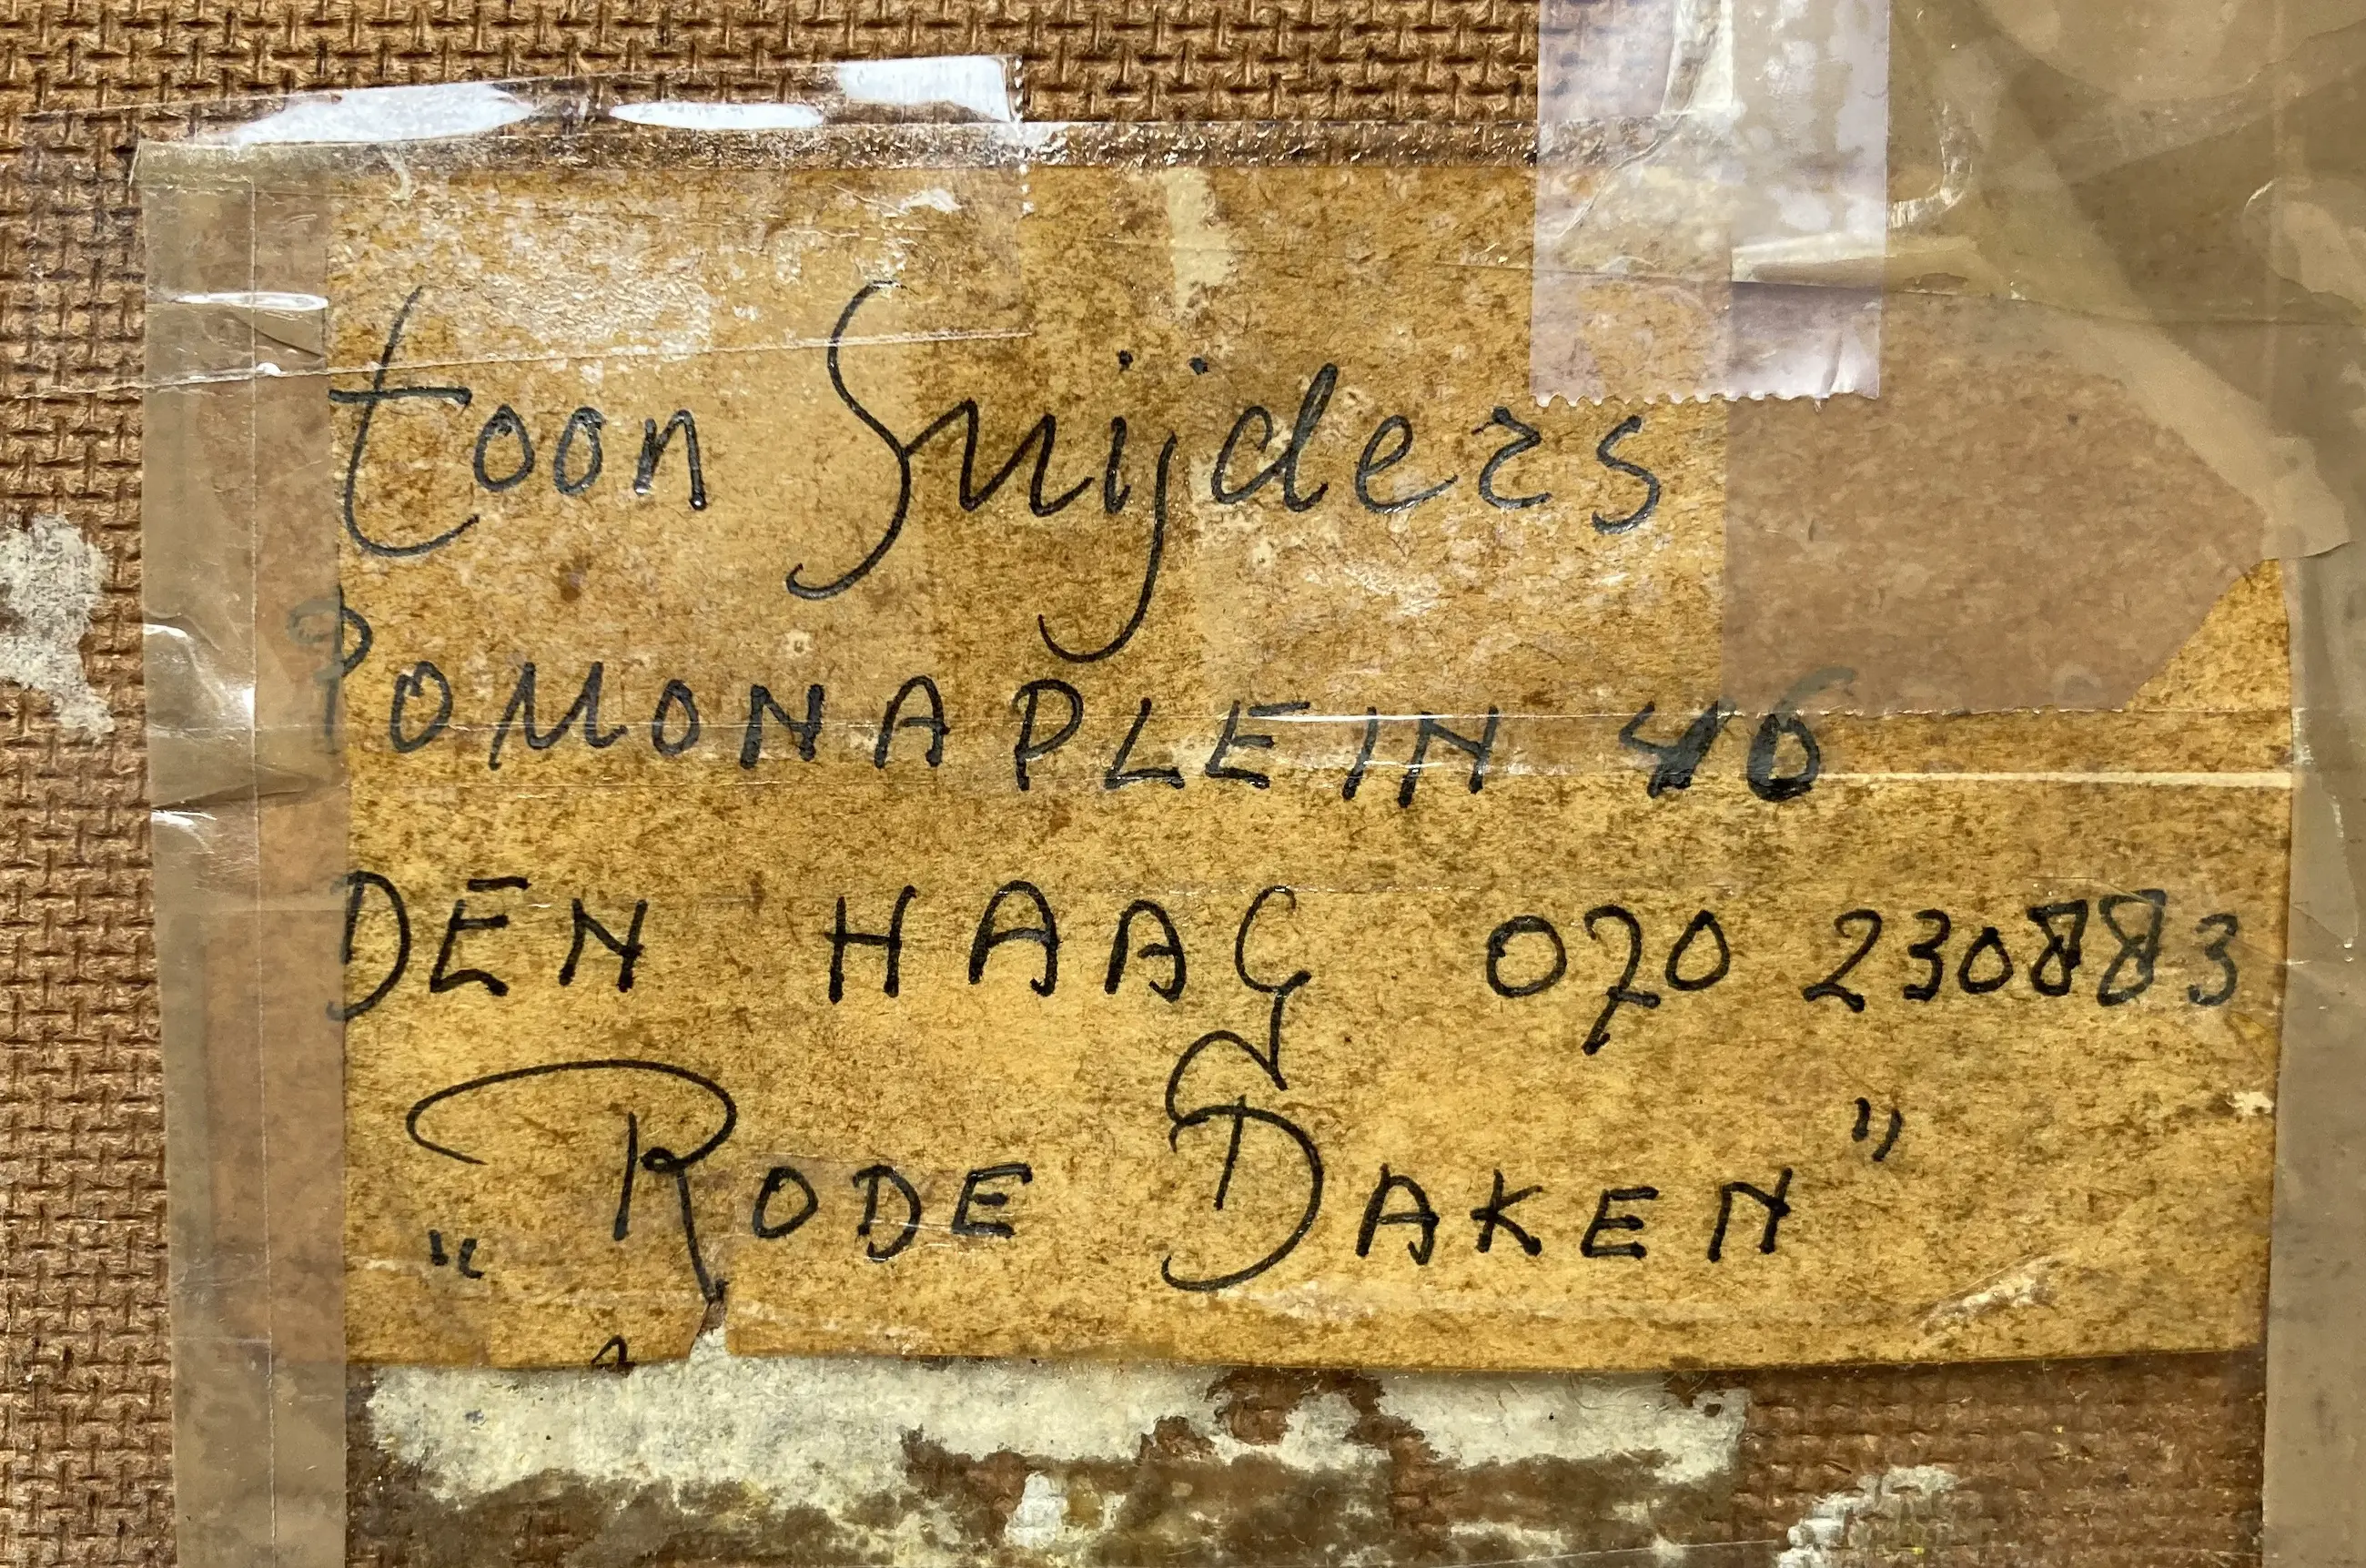 toon Snijders
POMONAPLEIN 46
DEN HAAG 070 230883
"RODE DAKEN"